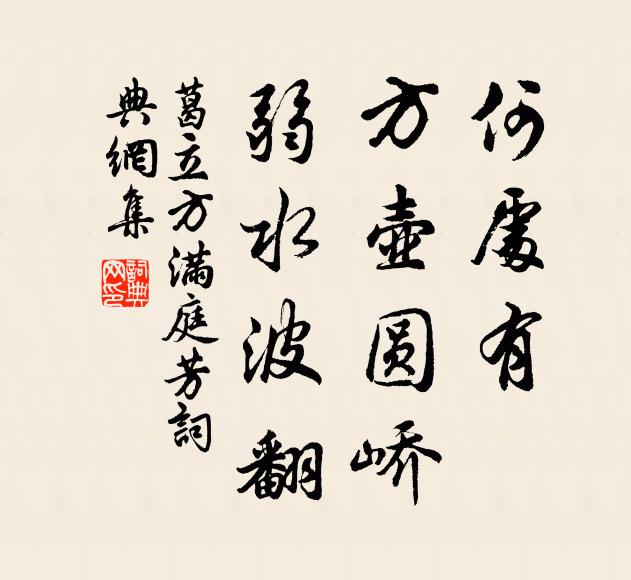 何處有
方壺圓嶠
弱水波翻
葛立方滿庭芳詞
典網集
詞典
网印